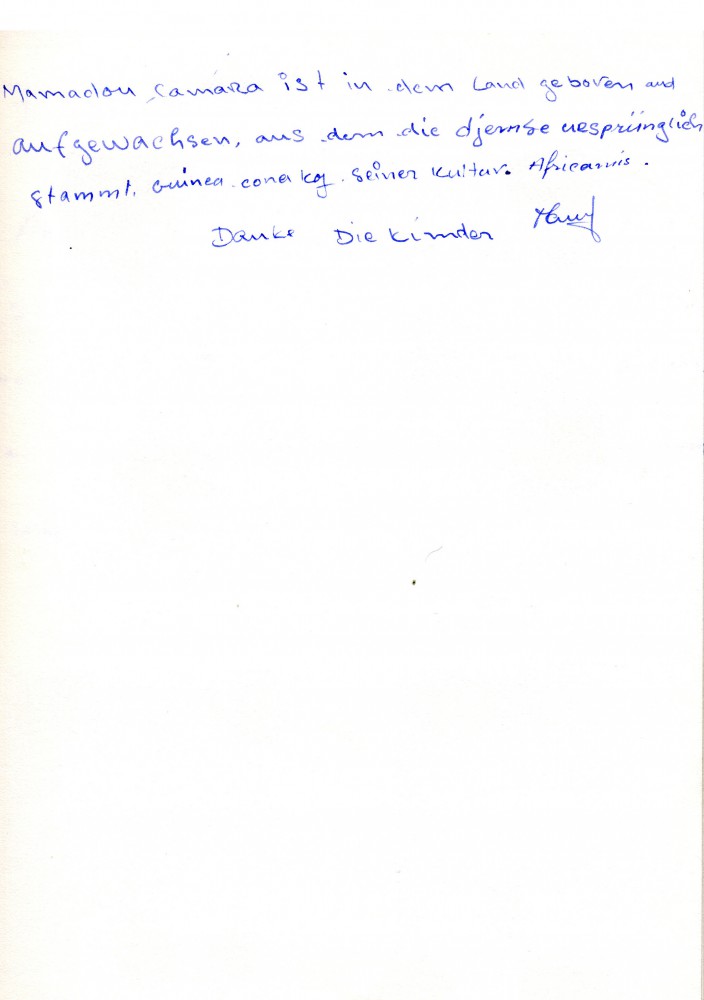 Mamadou Camara ist in dem Land geboren und
aufgewachsen, aus dem die djembe uesprünglich
stammt. Guinea conakg. seiner Kultur. Africanis.
Danke Die Kinder